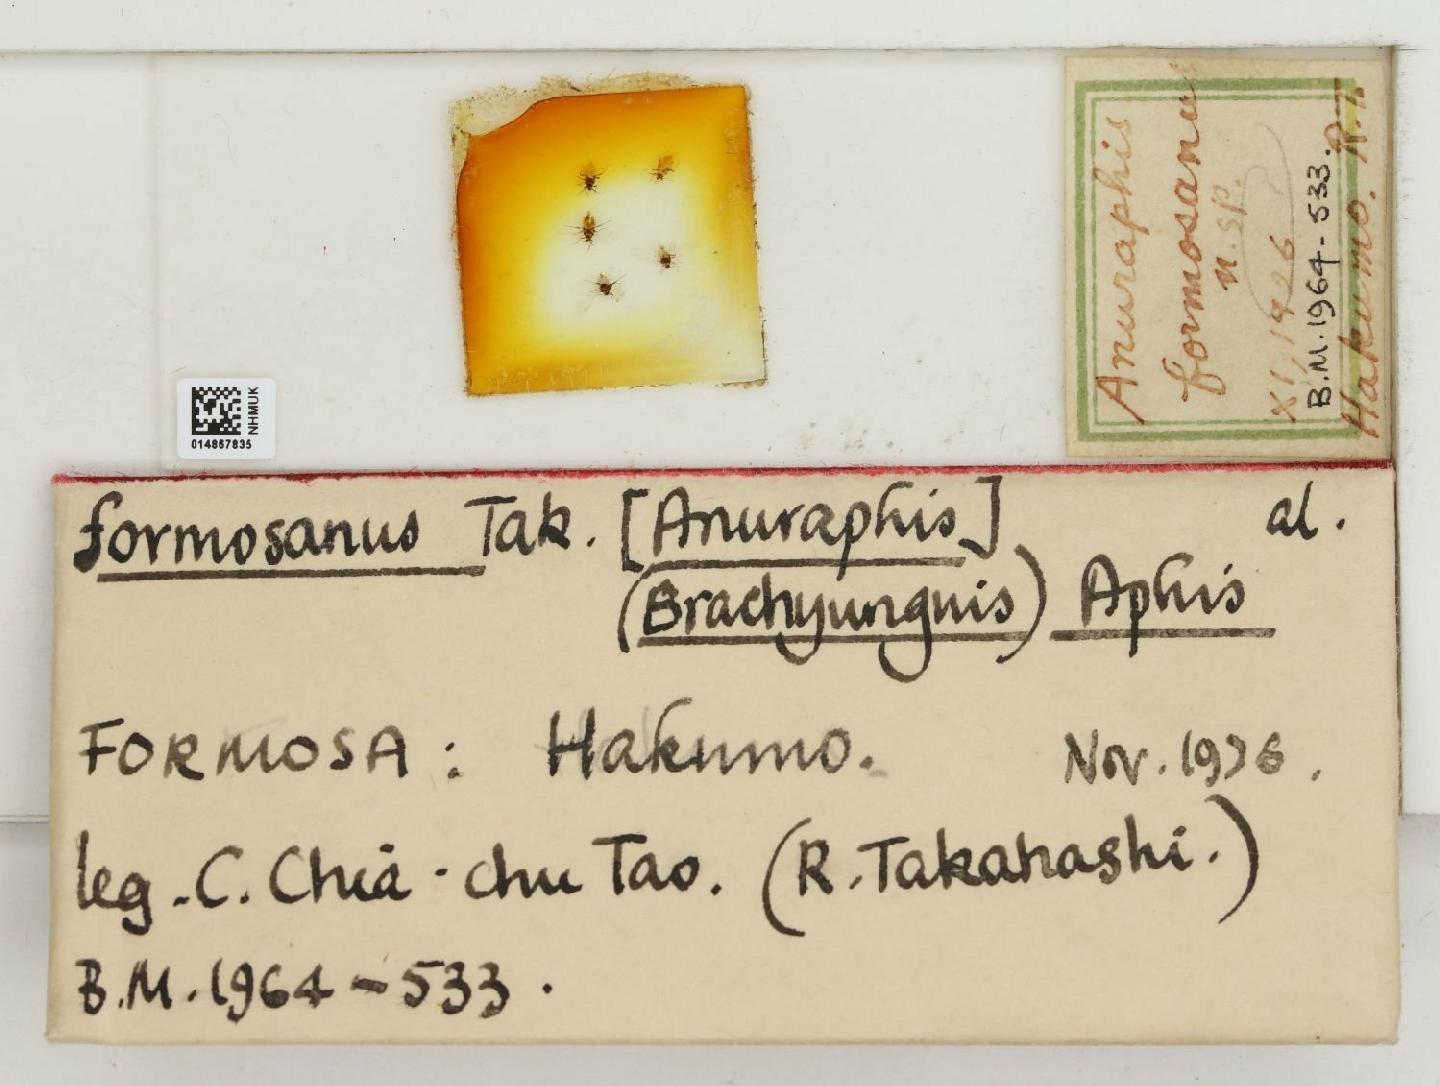 Anuraphis
formosanus
n. sp.
XI, 1926
B.M. 1964-533.
Hakumo. R.T.
NHMUK
014867835
formosanus Tak. [Anuraphis] al.
(Brachyunguis) Aphis
FORMOSA: Hakumo. Nov. 1926.
leg. C. Chia-chu Tao. (R. Takahashi.)
B.M. 1964-533.